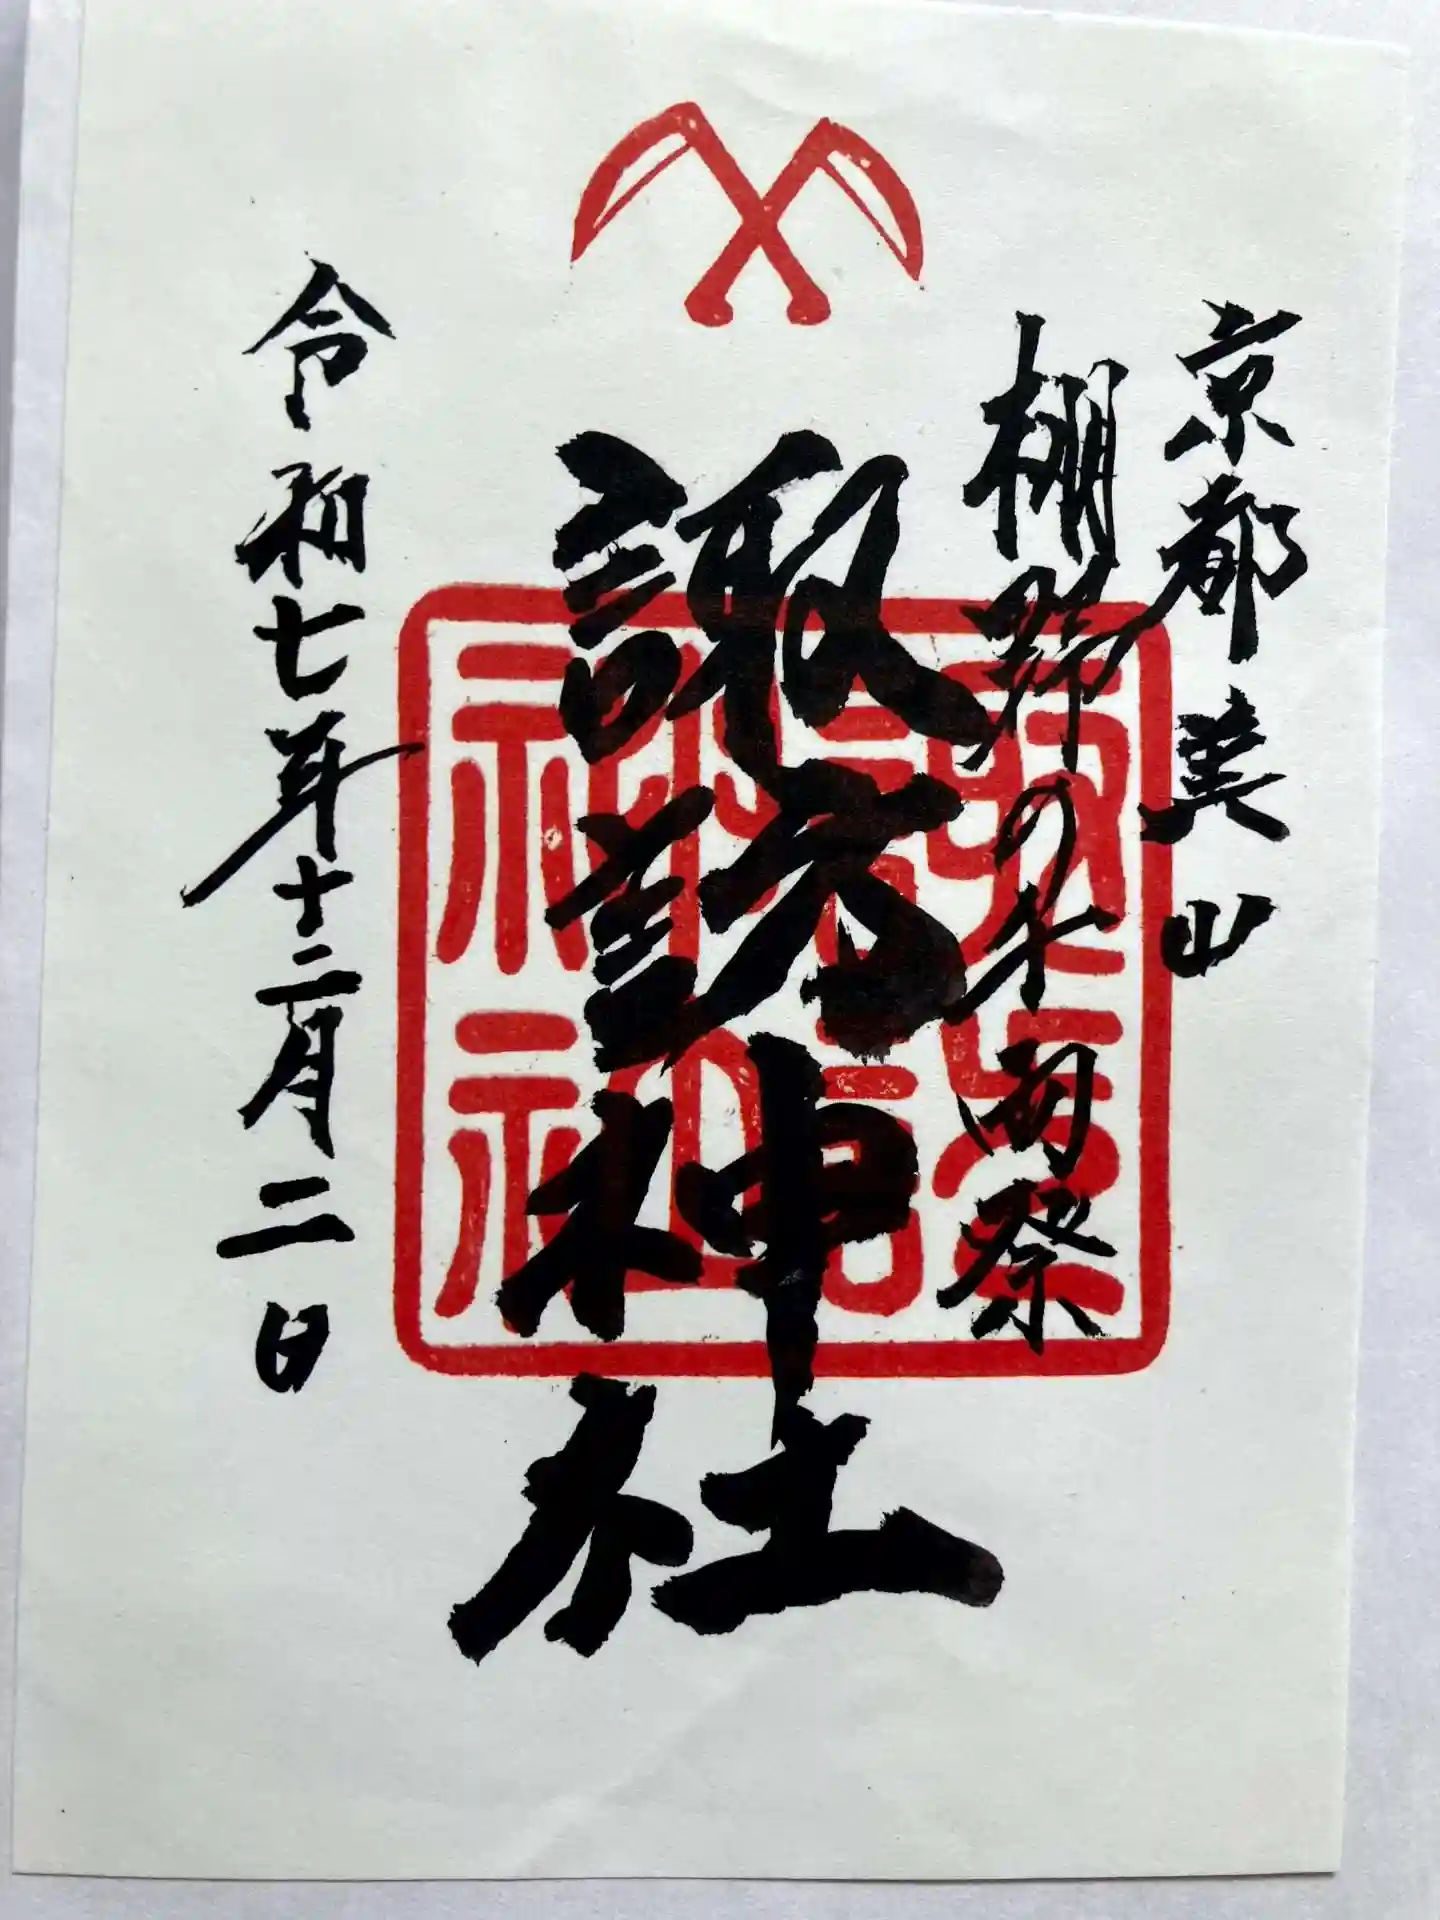 京都美山
棚野の千両祭
諏訪神社
令和七年十二月二日
諏訪
神社